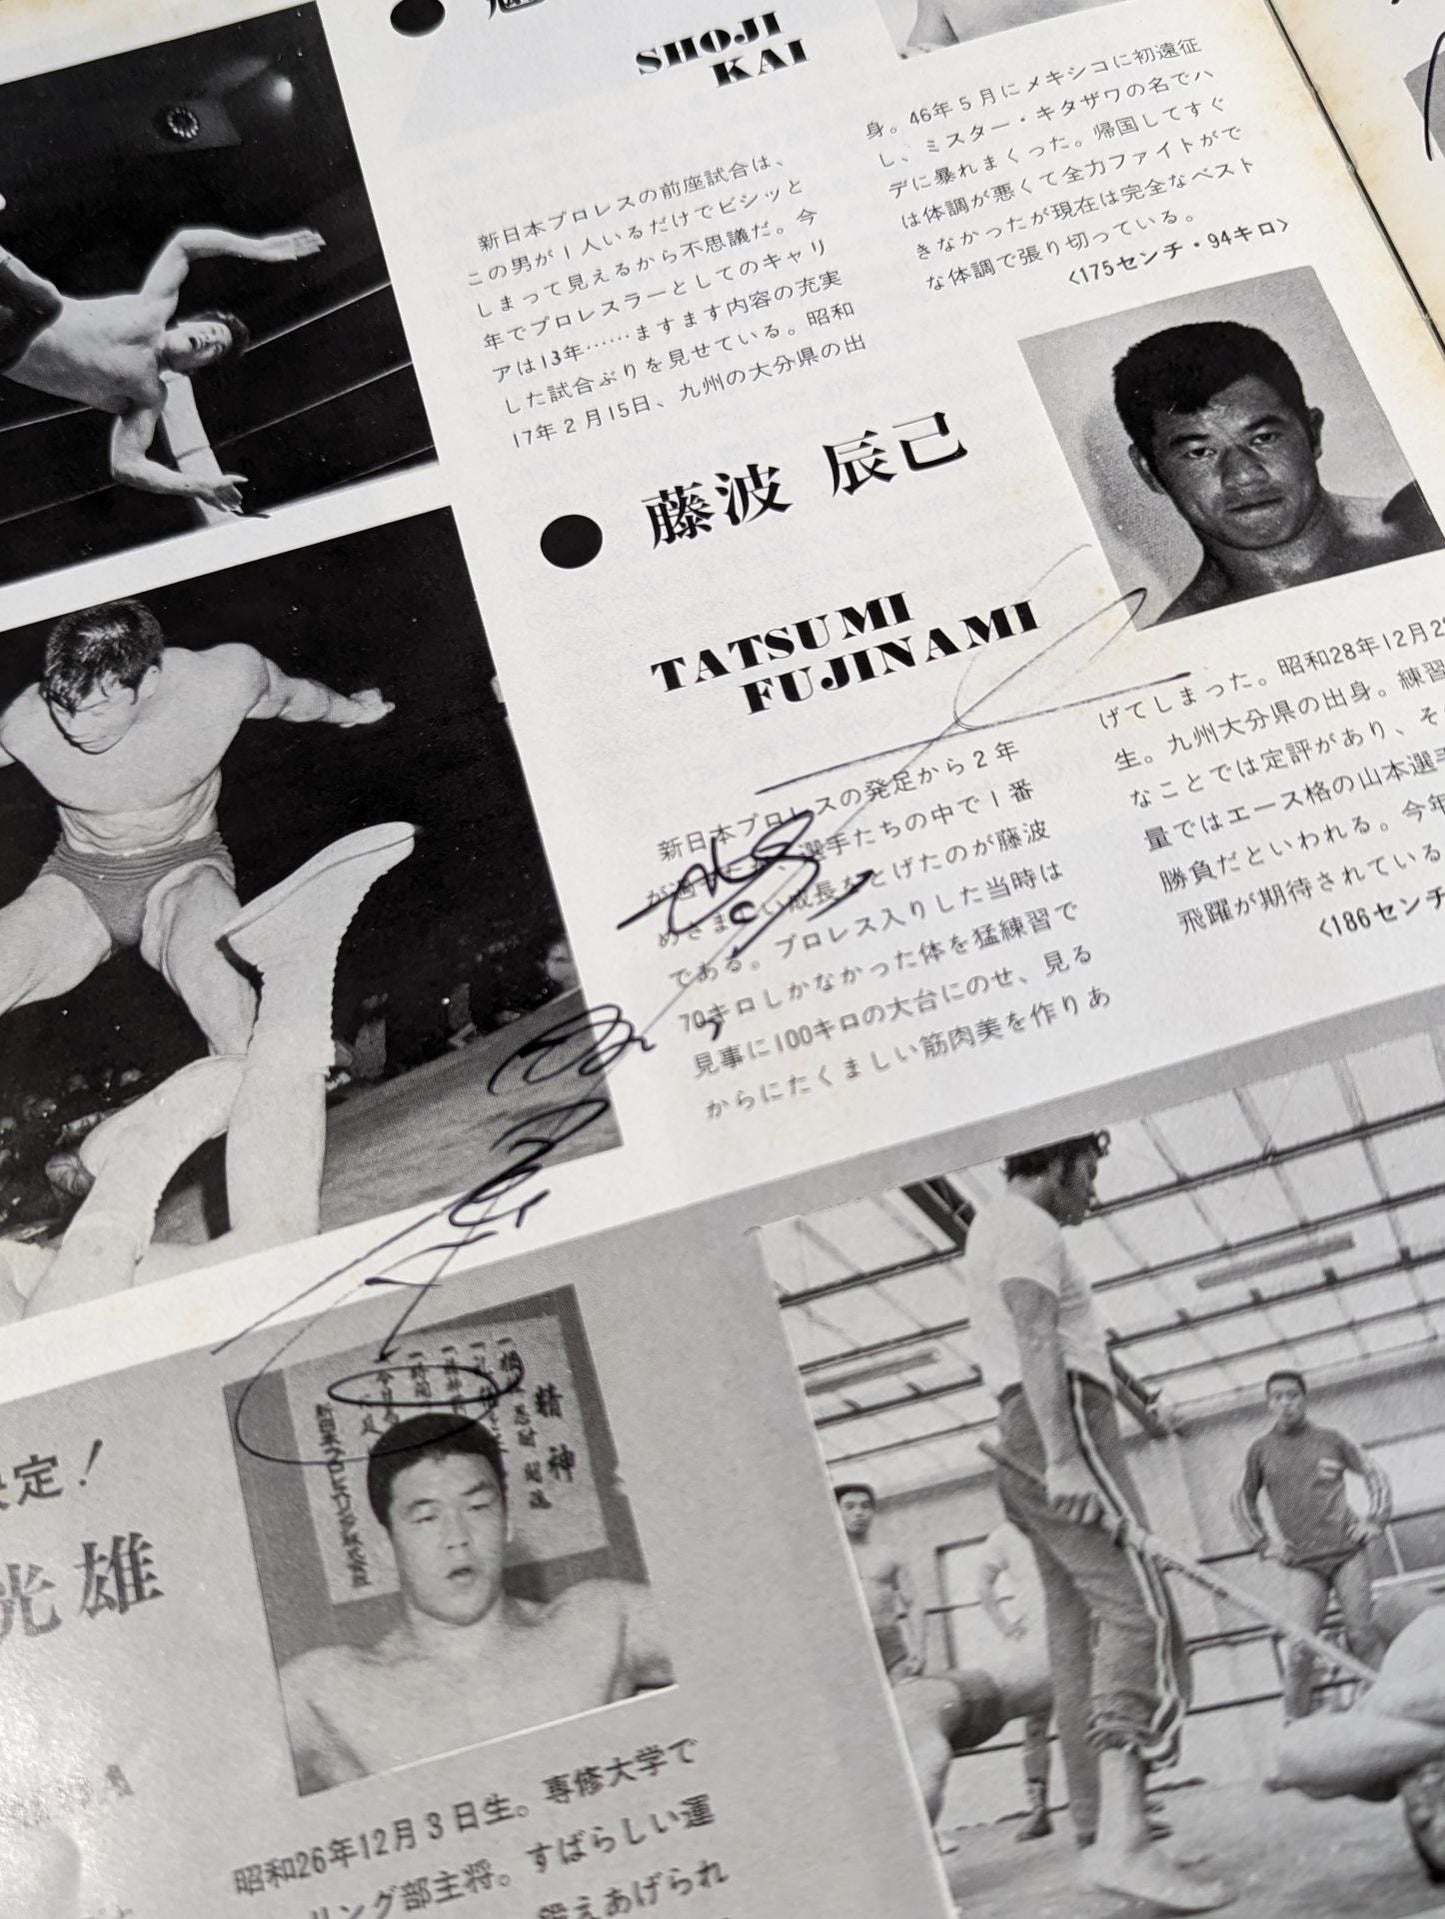 SHOJI
KAI
新日本プロレスの前座試合は、
この男が1人いるだけでピシッと
しまって見えるから不思議だ。今
年でプロレスラーとしてのキャリ
アは13年……ますます内容の充実
した試合ぶりを見せている。昭和
17年2月15日、九州の大分県の出
身。46年5月にメキシコに初遠征
し、ミスター・キタザワの名でハ
デに暴れまくった。帰国してすぐ
は体調が悪くて全力ファイトがで
きなかったが現在は完全なベスト
な体調で張り切っている。
〈175センチ・94キロ〉
●藤波 辰己
TATSUMI
FUJINAMI
新日本プロレスの発足から2年
が過ぎたが、選手たちの中で1番
めざましい成長をとげたのが藤波
である。プロレス入りした当時は
70キロしかなかった体を猛練習で
見事に100キロの大台にのせ、見る
からにたくましい筋肉美を作りあ
げてしまった。昭和28年12月2
生。九州大分県の出身。練習
なことでは定評があり、そ
量ではエース格の山本選手
勝負だといわれる。今年
飛躍が期待されている
〈186センチ
決定！
光雄
精神
昭和26年12月3日生。専修大学で
リング部主将。すばらしい運
鍛えあげられ